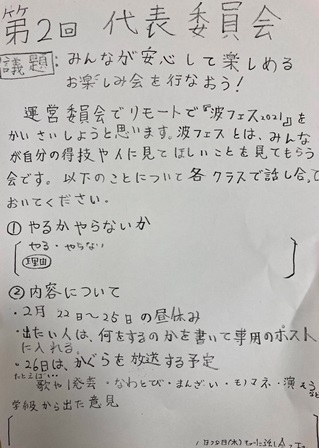 第2回 代表委員会
議題：みんなが安心して楽しめる
お楽しみ会を行なおう！
運営委員会でリモートで『波フェス2021』を
かいさいしようと思います。波フェスとは、みんな
が自分の得技や人に見てほしいことを見てもらう
会です。以下のことについて各クラスで話し合って
おいてください。
① やるかやらないか
やる・やらない
理由
② 内容について
・2月22日〜25日の昼休み
・出たい人は、何をするのかを書いて専用のポスト
に入れる。
・26日は、かぐらを放送する予定
たとえばい
歌や発表・なわとび・まんざい・モノマネ・演そうなど
学級から出た意見